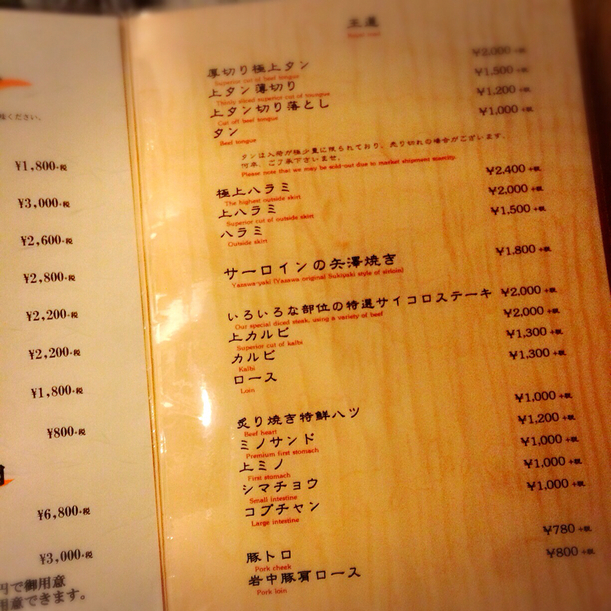 ください。
¥1,800+税
¥3,000+税
¥2,600+税
¥2,800+税
¥2,200+税
¥2,200+税
¥1,800+税
¥800+税
¥6,800+税
¥3,000+税
円で御用意
用意できます。
厚切り極上タン ¥2,000+税
Superior cut of beef tongue
上タン薄切り ¥1,500+税
Thinly sliced superior cut of toungue
上タン切り落とし ¥1,200+税
Cut off beef tongue
タン ¥1,000+税
Beef tongue
タンは入荷が極少量に限られており、売り切れの場合がございます。
何卒、ご了承下さいませ。
Please note that we may be sold out due to market shipment scarcity.
極上ハラミ ¥2,400+税
The highest outside skirt
上ハラミ ¥2,000+税
Superior cut of outside skirt
ハラミ ¥1,500+税
Outside skirt
サーロインの矢澤焼き ¥1,800+税
Yazawa-yaki (Yazawa original Sukiyaki style of sirloin)
いろいろな部位の特選サイコロステーキ ¥2,000+税
Our special diced steak, using a variety of beef
上カルビ ¥2,000+税
Superior cut of kalbi
カルビ ¥1,300+税
Kalbi
ロース ¥1,300+税
Loin
炙り焼き特鮮ハツ ¥1,000+税
Beef heart
ミノサンド ¥1,200+税
Premium first stomach
上ミノ ¥1,000+税
First stomach
シマチョウ ¥1,000+税
Small intestine
コプチャン ¥1,000+税
Large intestine
豚トロ ¥780+税
Pork cheek
岩中豚肩ロース ¥800+税
Pork loin